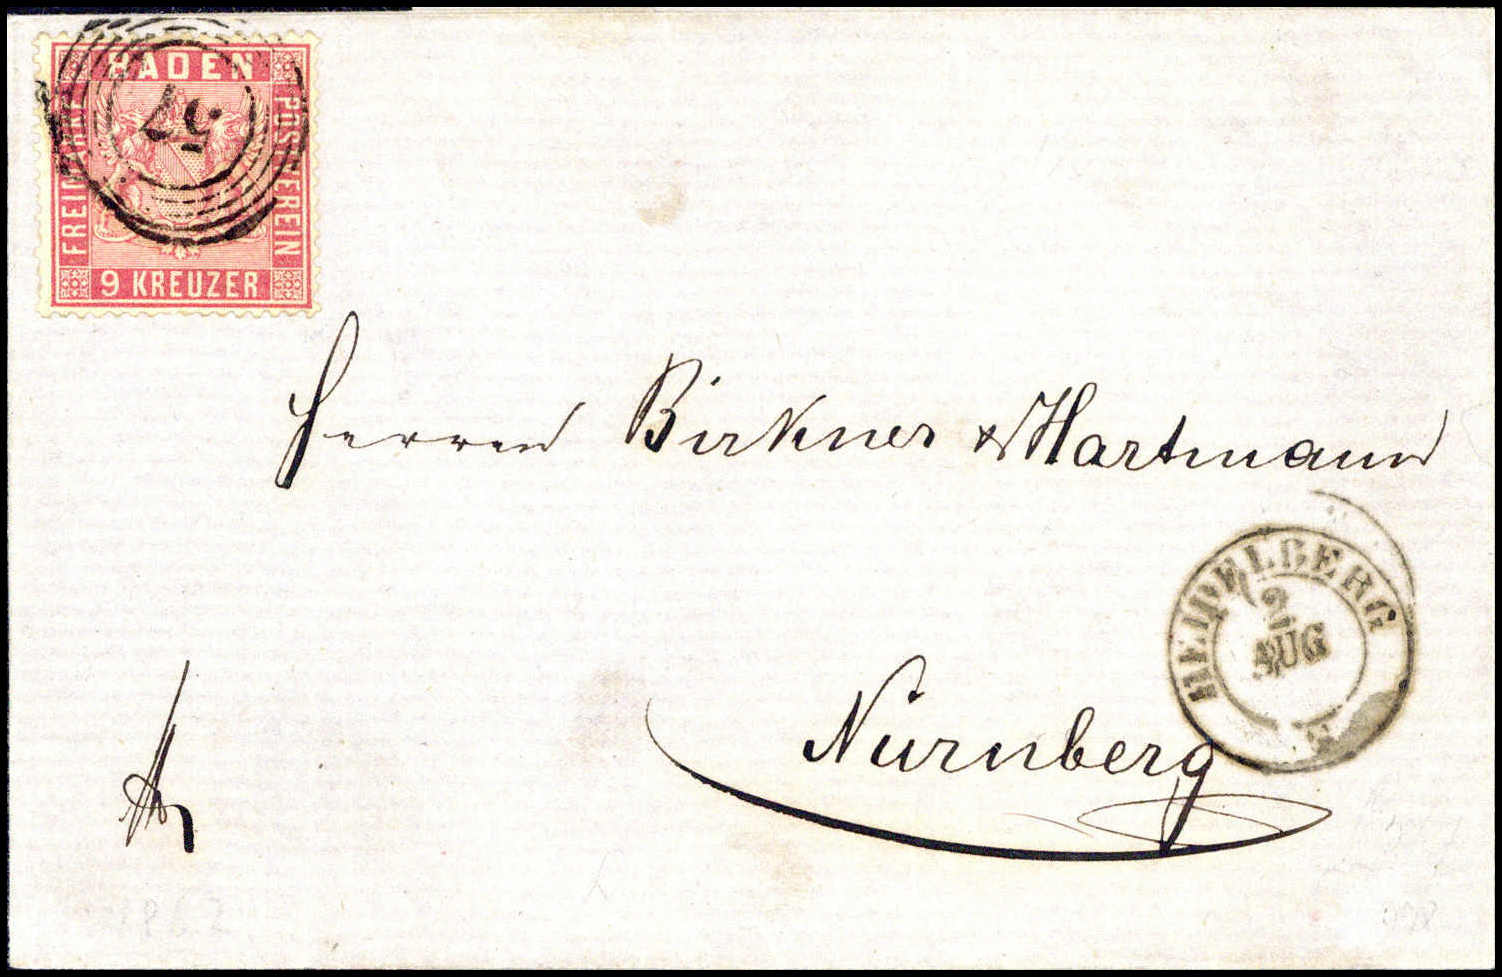 BADEN
FREIMARKE
POSTVEREIN
9 KREUZER
57
Herren Birkner & Hartmann
HEIDELBERG
2
AUG
Nürnberg